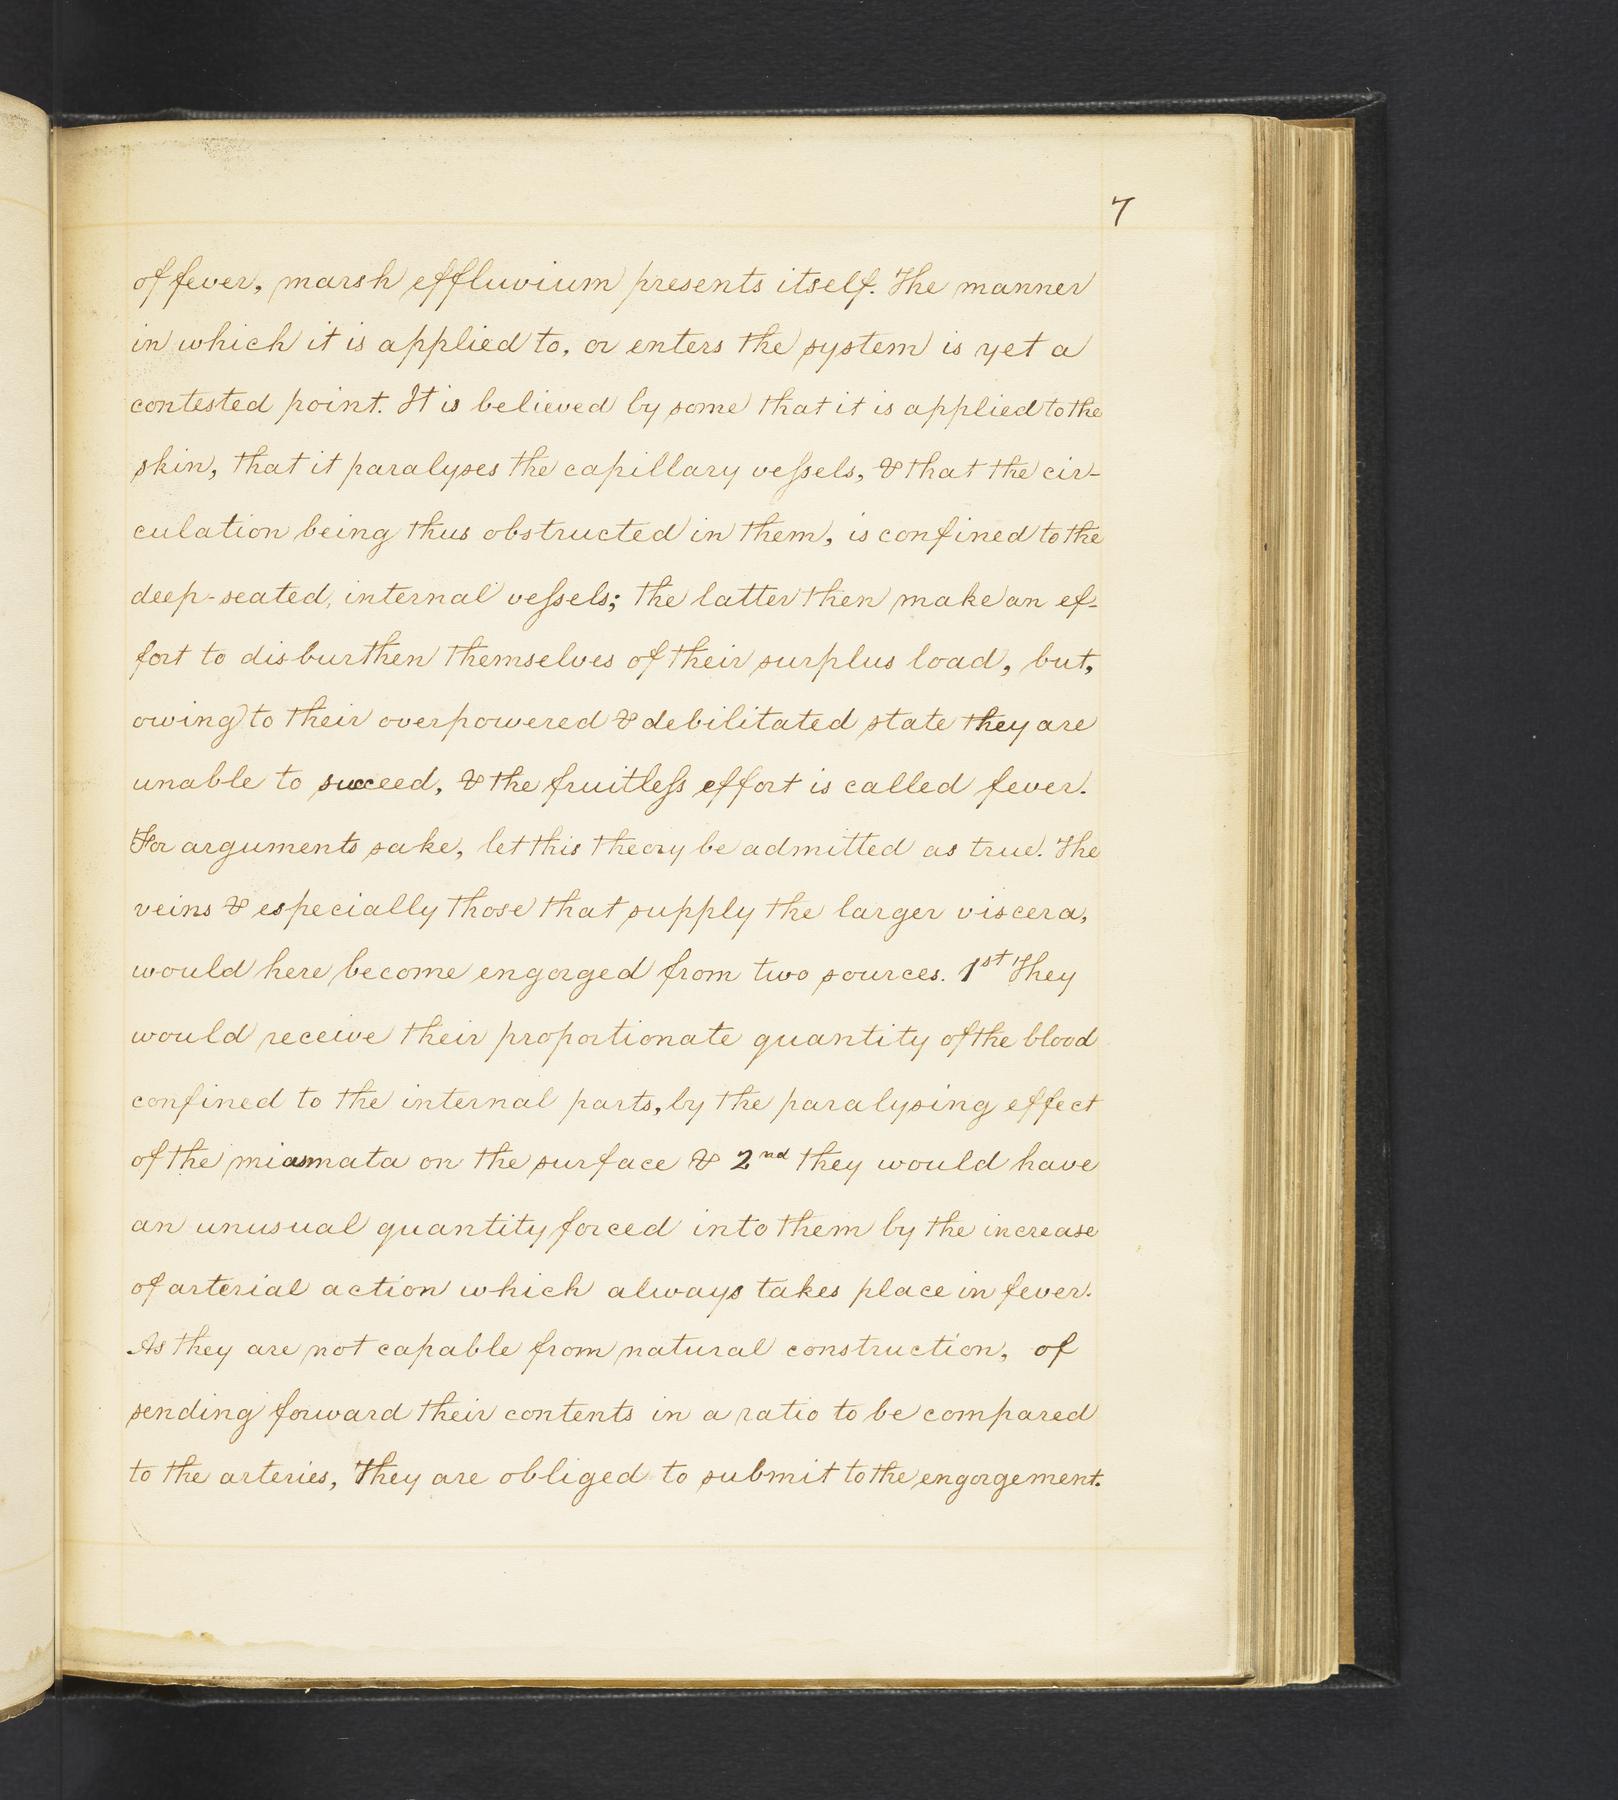 7
of fever, marsh effluvium presents itself. The manner
in which it is applied to, or enters the system is yet a
contested point. It is believed by some that it is applied to the
skin, that it paralyses the capillary veſsels, & that the cir-
culation being thus obstructed in them, is confined to the
deep-seated, internal veſsels; the latter then make an ef-
fort to disburthen themselves of their surplus load, but,
owing to their overpowered & debilitated state they are
unable to succeed, & the fruitleſs effort is called fever.
For arguments sake, let this theory be admitted as true. The
veins & especially those that supply the larger viscera,
would here become engorged from two sources. 1st They
would receive their proportionate quantity of the blood
confined to the internal parts, by the paralysing effect
of the miasmata on the surface & 2nd they would have
an unusual quantity forced into them by the increase
of arterial action which always takes place in fever.
As they are not capable from natural construction, of
sending forward their contents in a ratio to be compared
to the arteries, they are obliged to submit to the engorgement.